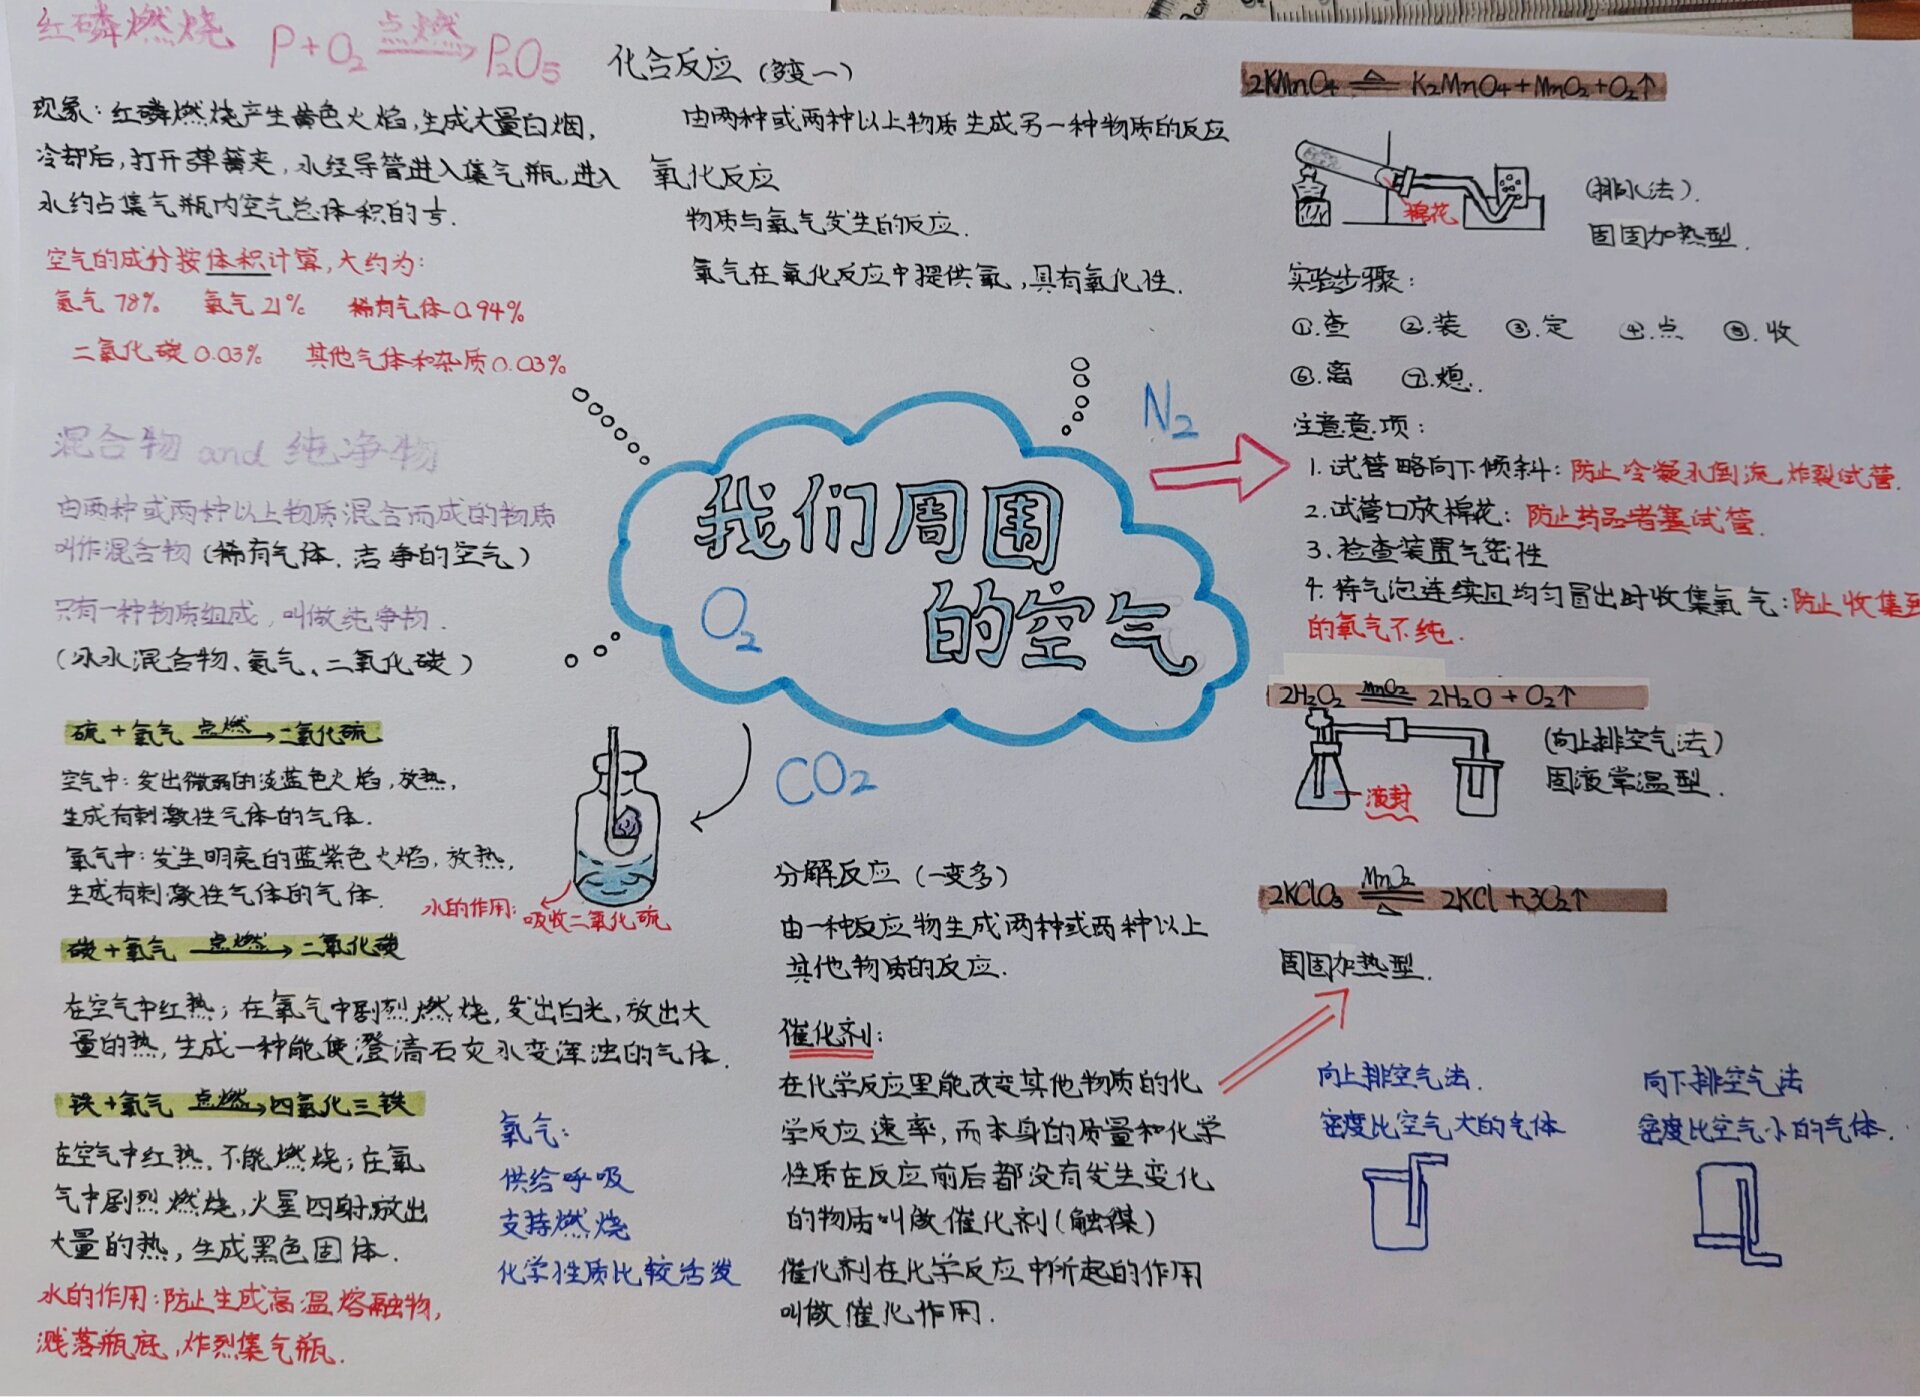 红磷燃烧 P+O₂ 点燃→ P₂O₅
现象：红磷燃烧产生黄色火焰，生成大量白烟，
冷却后，打开弹簧夹，水经导管进入集气瓶，进入
水约占集气瓶内空气总体积的1/5.
空气的成分按体积计算，大约为：
氮气78% 氧气21% 稀有气体0.94%
二氧化碳0.03% 其他气体和杂质0.03%
混合物 and 纯净物
由两种或两种以上物质混合而成的物质
叫作混合物（稀有气体、洁净的空气）
只有一种物质组成，叫做纯净物.
（冰水混合物、氨气、二氧化碳）
硫+氧气 点燃→ 二氧化硫
空气中：发出微弱的淡蓝色火焰，放热，
生成有刺激性气体的气体.
氧气中：发生明亮的蓝紫色火焰，放热，
生成有刺激性气体的气体.
水的作用：吸收二氧化硫
碳+氧气 点燃→ 二氧化碳
在空气中红热；在氧气中剧烈燃烧，发出白光，放出大
量的热，生成一种能使澄清石灰水变浑浊的气体.
铁+氧气 点燃→ 四氧化三铁
在空气中红热，不能燃烧；在氧
气中剧烈燃烧，火星四射，放出
大量的热，生成黑色固体.
水的作用：防止生成高温熔融物，
溅落瓶底，炸烈集气瓶.
氧气：
供给呼吸
支持燃烧
化学性质比较活发
化合反应（多变一）
由两种或两种以上物质生成另一种物质的反应
氧化反应
物质与氧气发生的反应.
氧气在氧化反应中提供氧，具有氧化性.
我们周围
的空气
O₂
N₂
CO₂
分解反应（一变多）
由一种反应物生成两种或两种以上
其他物质的反应.
催化剂：
在化学反应里能改变其他物质的化
学反应速率，而本身的质量和化学
性质在反应前后都没有发生变化
的物质叫做催化剂（触媒）
催化剂在化学反应中所起的作用
叫做催化作用.
2KMnO₄ △ K₂MnO₄+MnO₂+O₂↑
棉花
（排水法）.
固固加热型.
实验步骤：
①.查 ②.装 ③.定 ④.点 ⑤.收
⑥.离 ⑦.熄.
注意意项：
1.试管略向下倾斜：防止冷凝水倒流，炸裂试管.
2.试管口放棉花：防止药品堵塞试管.
3.检查装置气密性
4.待气泡连续且均匀冒出时收集氧气：防止收集到
的氧气不纯.
2H₂O₂ MnO₂ 2H₂O+O₂↑
（向上排空气法）
固液常温型.
液封
2KClO₃ MnO₂ △ 2KCl+3O₂↑
固固加热型.
向上排空气法.
密度比空气大的气体
向下排空气法
密度比空气小的气体.